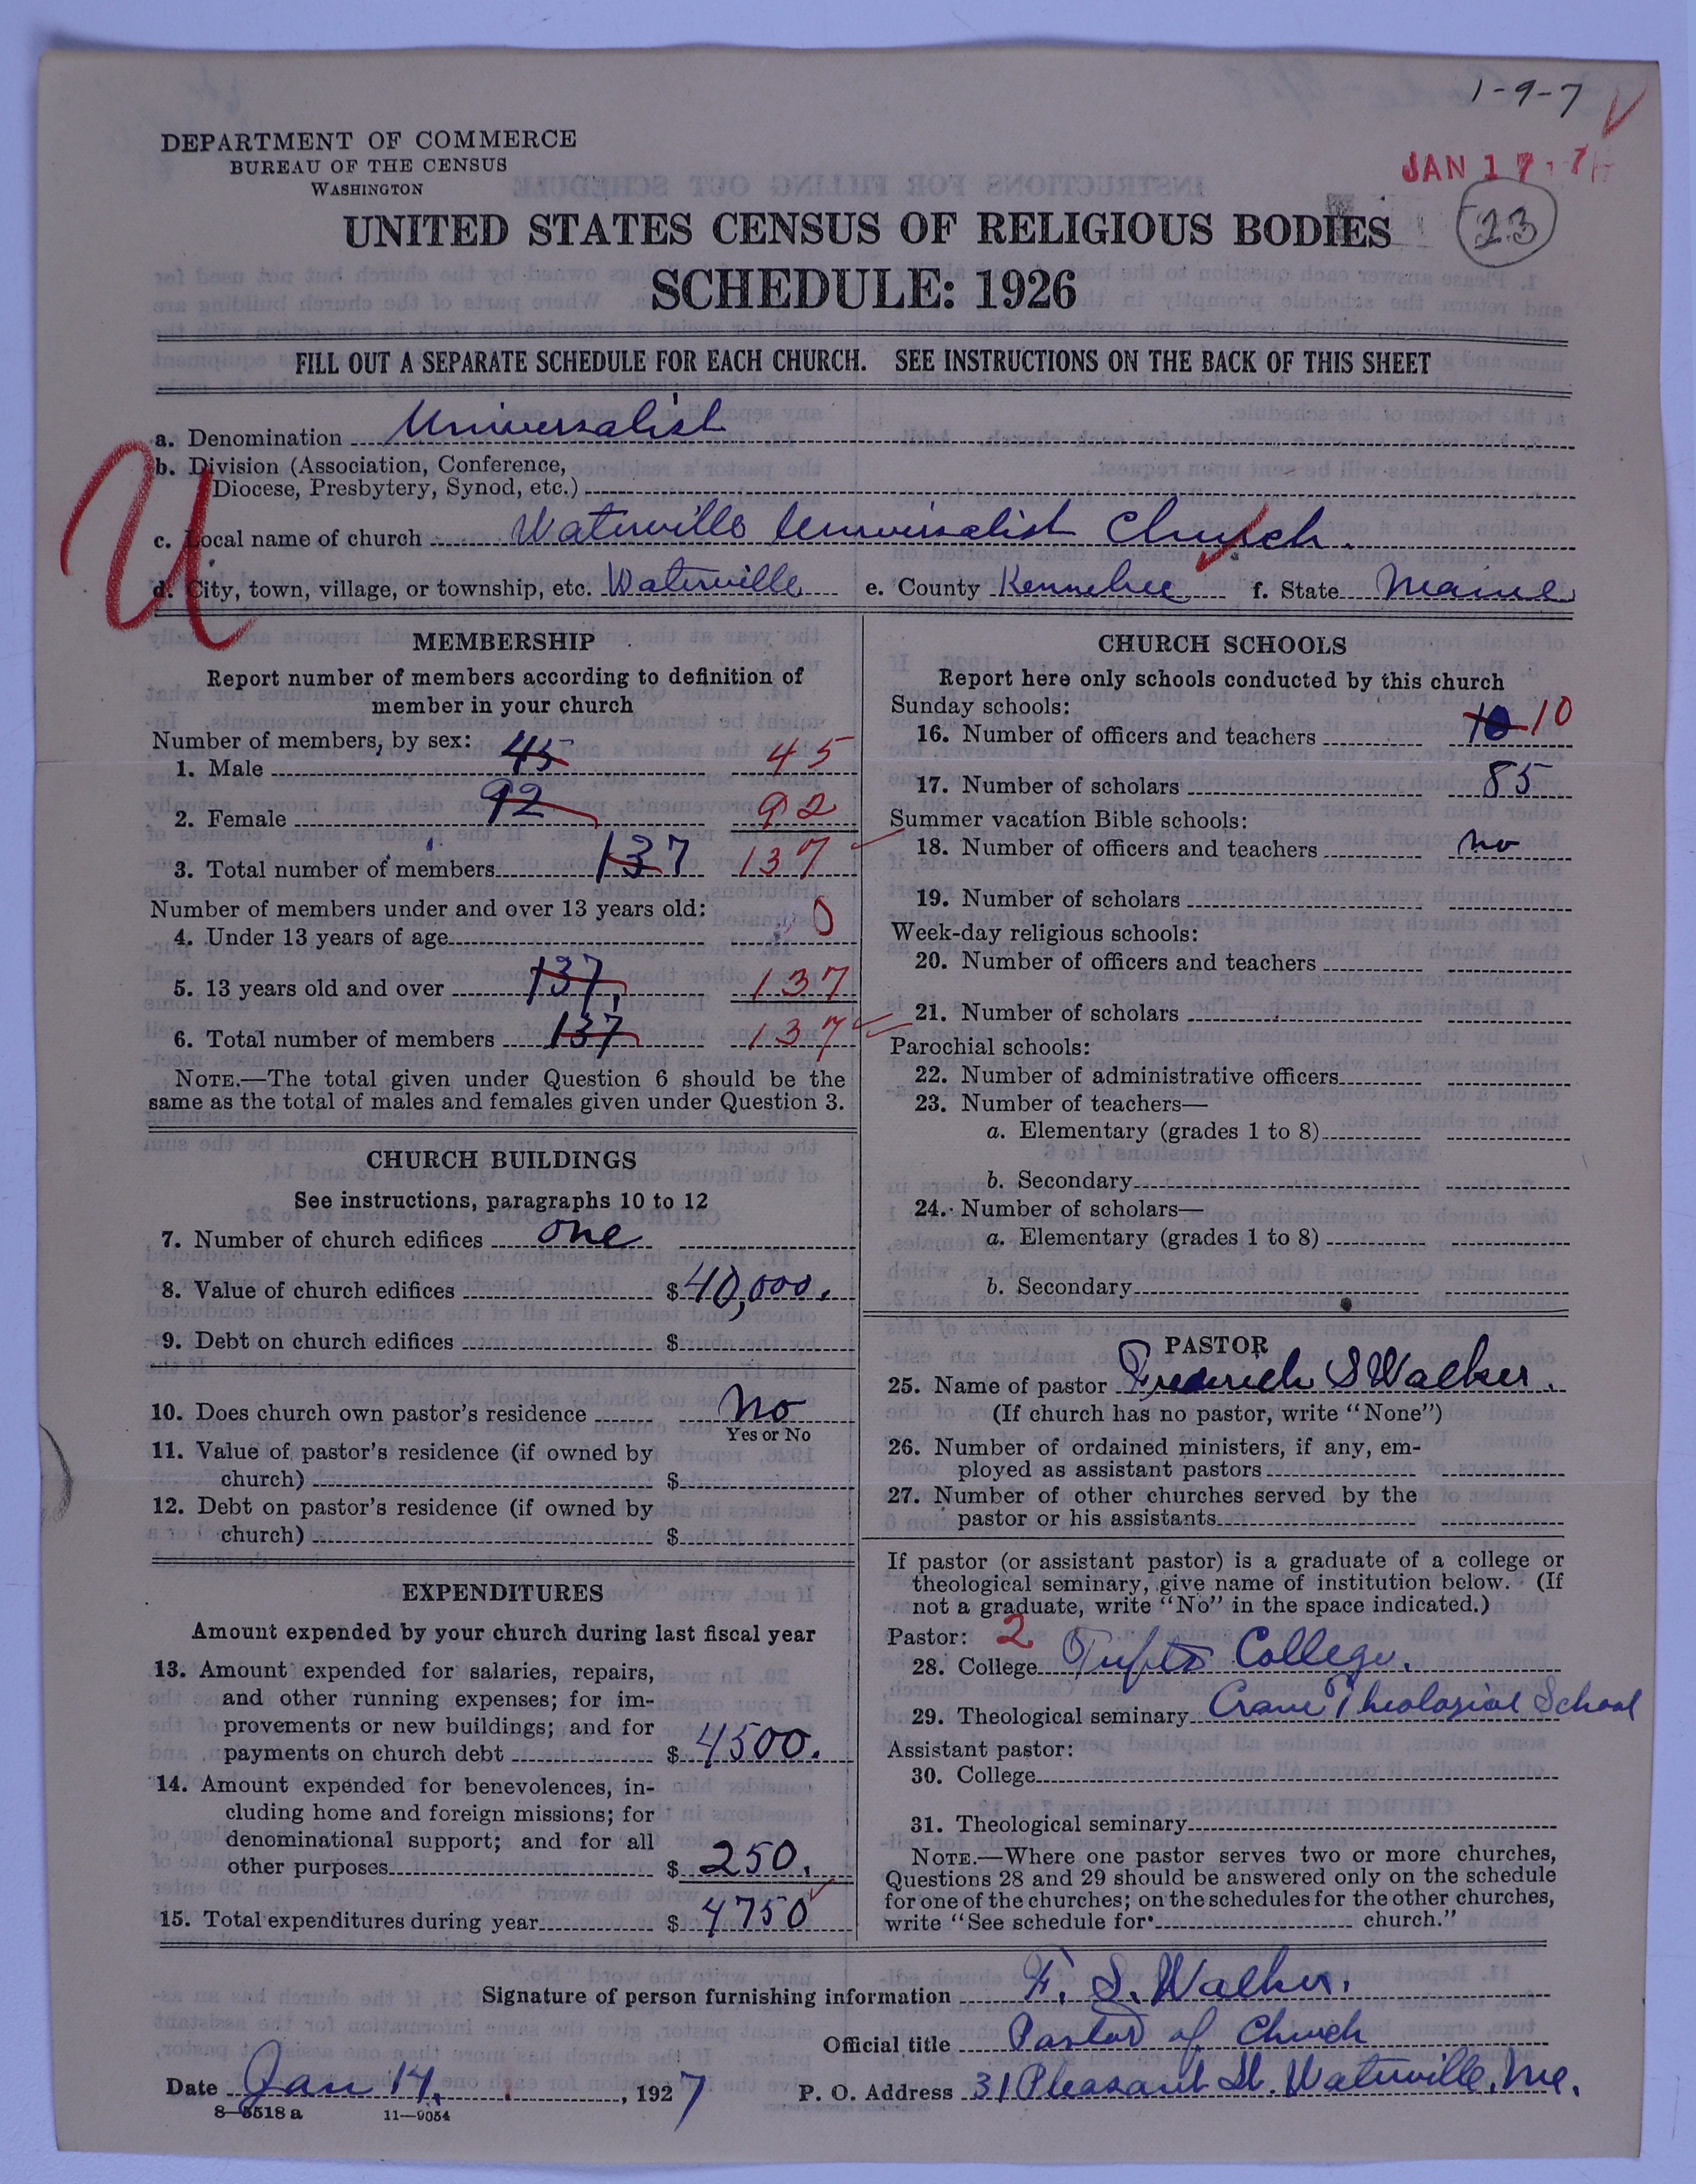 1-9-7
DEPARTMENT OF COMMERCE
BUREAU OF THE CENSUS
WASHINGTON
JAN 17
23
UNITED STATES CENSUS OF RELIGIOUS BODIES
SCHEDULE: 1926
FILL OUT A SEPARATE SCHEDULE FOR EACH CHURCH. SEE INSTRUCTIONS ON THE BACK OF THIS SHEET
U
a. Denomination Universalist
b. Division (Association, Conference,
Diocese, Presbytery, Synod, etc.)
c. Local name of church Waterville Universalist Church.
d. City, town, village, or township, etc. Waterville e. County Kennebec f. State Maine
MEMBERSHIP
Report number of members according to definition of
member in your church
Number of members, by sex:
1. Male 45 45
2. Female 92 92
3. Total number of members 137 137
Number of members under and over 13 years old:
4. Under 13 years of age 0
5. 13 years old and over 137 137
6. Total number of members 137 137
NOTE.—The total given under Question 6 should be the
same as the total of males and females given under Question 3.
CHURCH BUILDINGS
See instructions, paragraphs 10 to 12
7. Number of church edifices one
8. Value of church edifices $ 40,000.
9. Debt on church edifices $
10. Does church own pastor's residence No
Yes or No
11. Value of pastor's residence (if owned by
church) $
12. Debt on pastor's residence (if owned by
church) $
EXPENDITURES
Amount expended by your church during last fiscal year
13. Amount expended for salaries, repairs,
and other running expenses; for im-
provements or new buildings; and for
payments on church debt $ 4500.
14. Amount expended for benevolences, in-
cluding home and foreign missions; for
denominational support; and for all
other purposes $ 250.
15. Total expenditures during year $ 4750
CHURCH SCHOOLS
Report here only schools conducted by this church
Sunday schools:
16. Number of officers and teachers 10 10
17. Number of scholars 85
Summer vacation Bible schools:
18. Number of officers and teachers no
19. Number of scholars
Week-day religious schools:
20. Number of officers and teachers
21. Number of scholars
Parochial schools:
22. Number of administrative officers
23. Number of teachers—
a. Elementary (grades 1 to 8)
b. Secondary
24. Number of scholars—
a. Elementary (grades 1 to 8)
b. Secondary
PASTOR
25. Name of pastor Frederick S Walker.
(If church has no pastor, write "None")
26. Number of ordained ministers, if any, em-
ployed as assistant pastors
27. Number of other churches served by the
pastor or his assistants
If pastor (or assistant pastor) is a graduate of a college or
theological seminary, give name of institution below. (If
not a graduate, write "No" in the space indicated.)
Pastor: 2
28. College Tufts College.
29. Theological seminary Crane Theological School
Assistant pastor:
30. College
31. Theological seminary
NOTE.—Where one pastor serves two or more churches,
Questions 28 and 29 should be answered only on the schedule
for one of the churches; on the schedules for the other churches,
write "See schedule for church."
Signature of person furnishing information F. S. Walker.
Official title Pastor of Church
Date Jan 14, 1927 P. O. Address 31 Pleasant St. Waterville, Me.
8—5518 a 11—9054